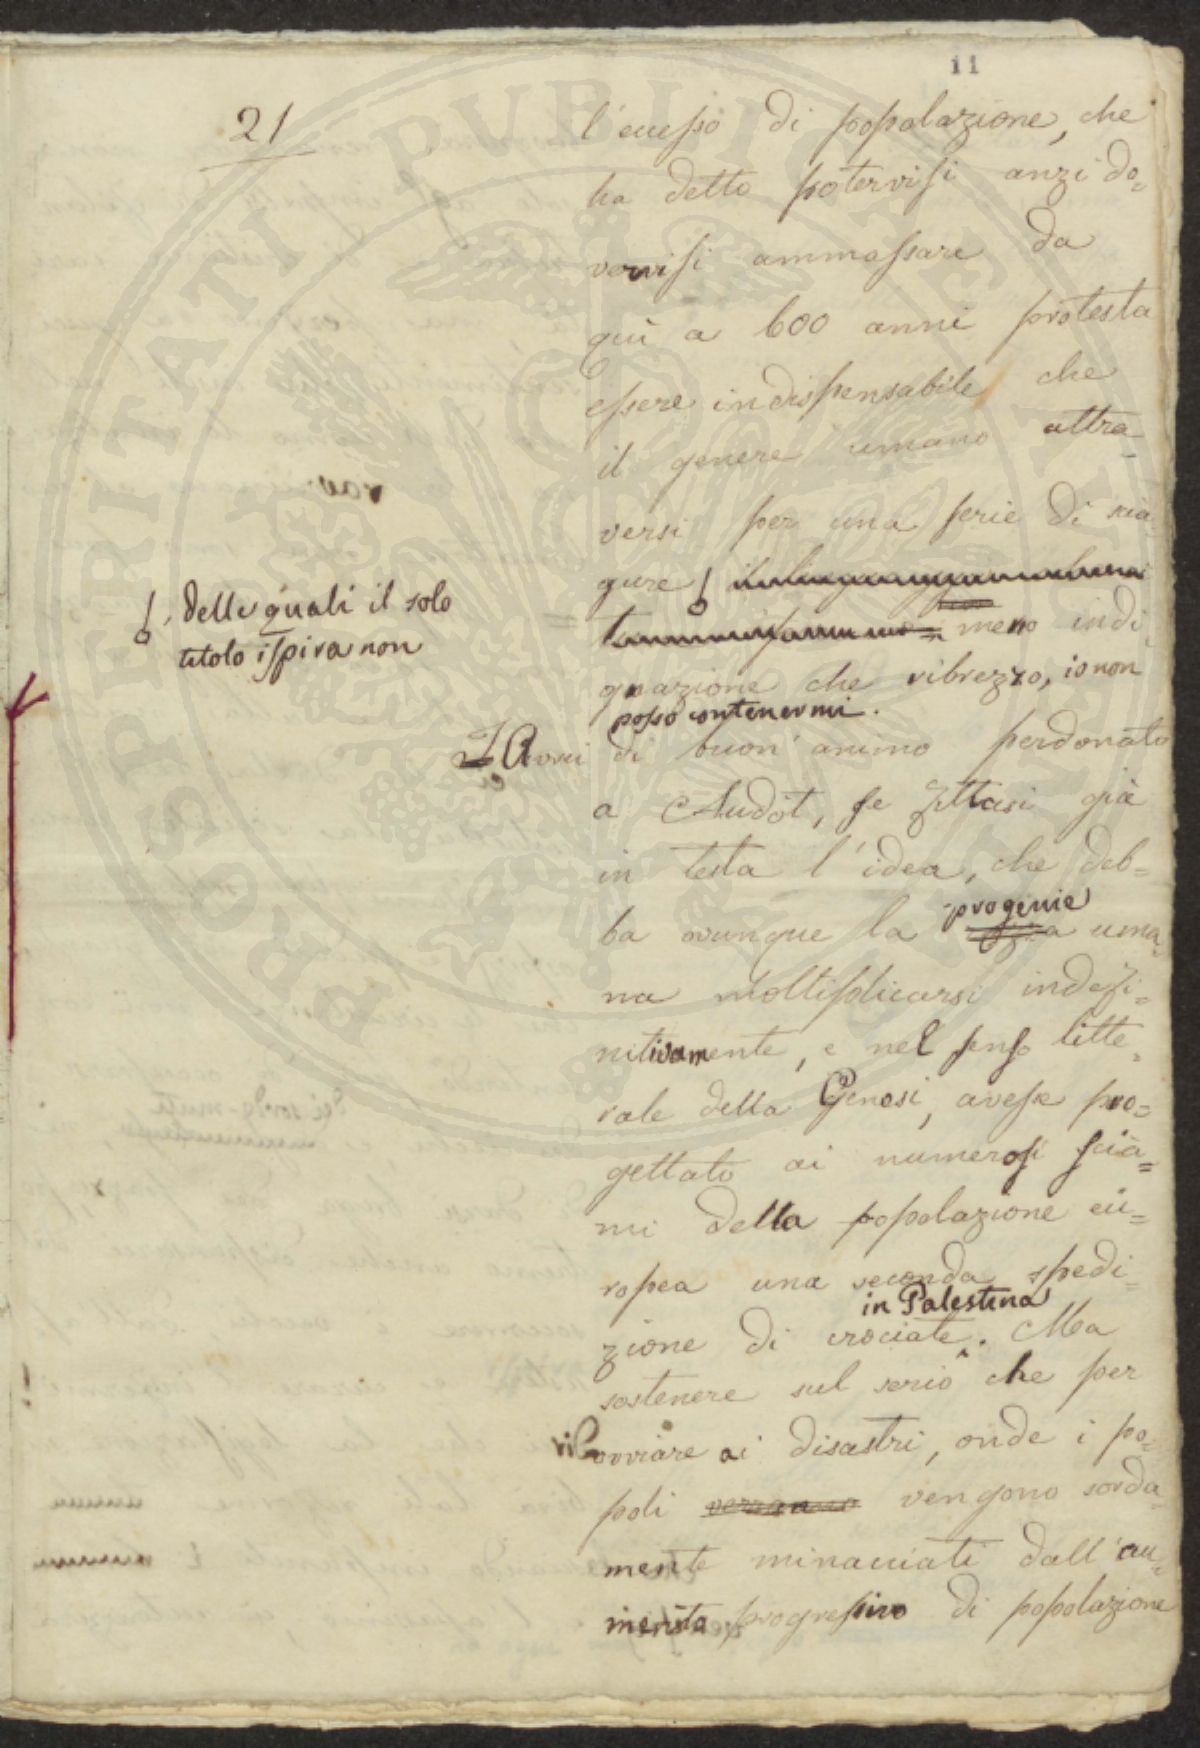 11
21
l'eccesso di popolazione, che
ha detto potervisi anzi do=
vervisi ammassare da
qui a 600 anni protesta
essere indispensabile che
il genere umano attra=
versi per una serie di scia
gure
delle quali il solo
titolo ispira non
meno indi=
gnazione che ribrezzo, io non
posso contenermi.
Avrei di buon' animo perdonato
a Audot, se fittasi già
in testa l'idea, che deb=
ba ovunque la progenie uma=
na moltiplicarsi indefi=
nitivamente, e nel senso litte=
rale della Genesi, avesse pro=
gettato ai numerosi scia=
mi della popolazione eu=
ropea una seconda spedi=
zione di crociate in Palestina. Ma
sostenere sul serio che per
ovviare ai disastri, onde i po=
poli vengono sorda=
mente minacciati dall'au=
mento progressivo di popolazione
PROSPERITATI PUBLICAE